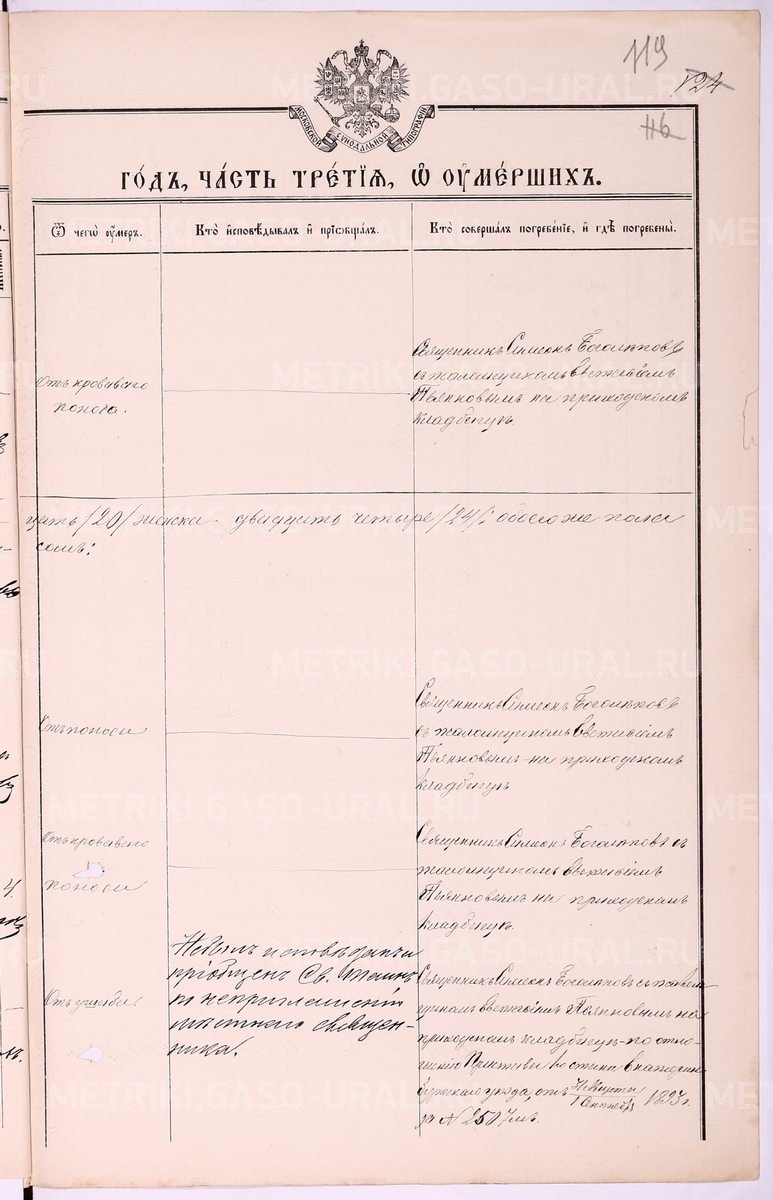 119
124
116
МОСКОВСКОЙ СУНОДАЛЬНОЙ ТИПОГРАФІИ
ГО́ДЪ, ЧА́СТЬ ТРЕ́ТІѦ, Ѡ ОУ҆МЕ́РШИХЪ.
Ѿ чегѡ̀ оу҆́меръ.
Кто̀ и҆сповѣ́дывалъ и҆ прїѡбща́лъ.
Кто̀ соверша́лъ погребе́нїе, и҆ гдѣ̀ погребены̀.
Отъ кроваваго
поноса.
Священникъ Симеонъ Боголѣповъ
съ псаломщикомъ Евгеніемъ
Пьянковымъ на приходскомъ
кладбищѣ.
цать /20/ женска двадцать четыре /24/; обоего же пола
Отъ поноса
Священникъ Симеонъ Боголѣповъ
съ псаломщикомъ Евгеніемъ
Пьянковымъ на приходскомъ
кладбищѣ
Отъ кроваваго
поноса
Священникъ Симеонъ Боголѣповъ съ
псаломщикомъ Евгеніемъ
Пьянковымъ на приходскомъ
кладбищѣ.
Отъ
Не былъ исповѣданъ и
пріобщенъ Св. Таинъ
по неприглашенію
мѣстнаго священ-
ника.
Священникъ Симеонъ Боголѣповъ съ псалом-
щикомъ Евгеніемъ Пьянковымъ на
приходскомъ кладбищѣ по отно-
шенію Пристава Екатерин-
бургскаго уѣзда, отъ 31 Августа
1 Сентября 1893 г.
за № 2507мъ.
METRIKI.GASO-URAL.RU